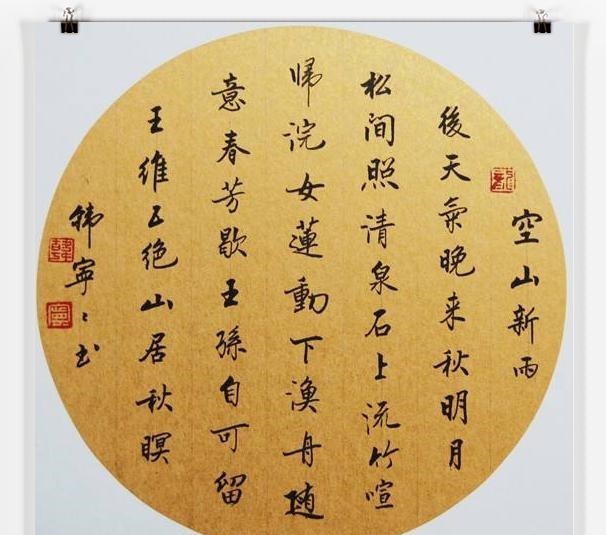 空山新雨
後天氣晚来秋明月
松间照清泉石上流竹喧
帰浣女蓮動下漁舟随
意春芳歇王孫自可留
王維五绝山居秋暝
韩寧〻书